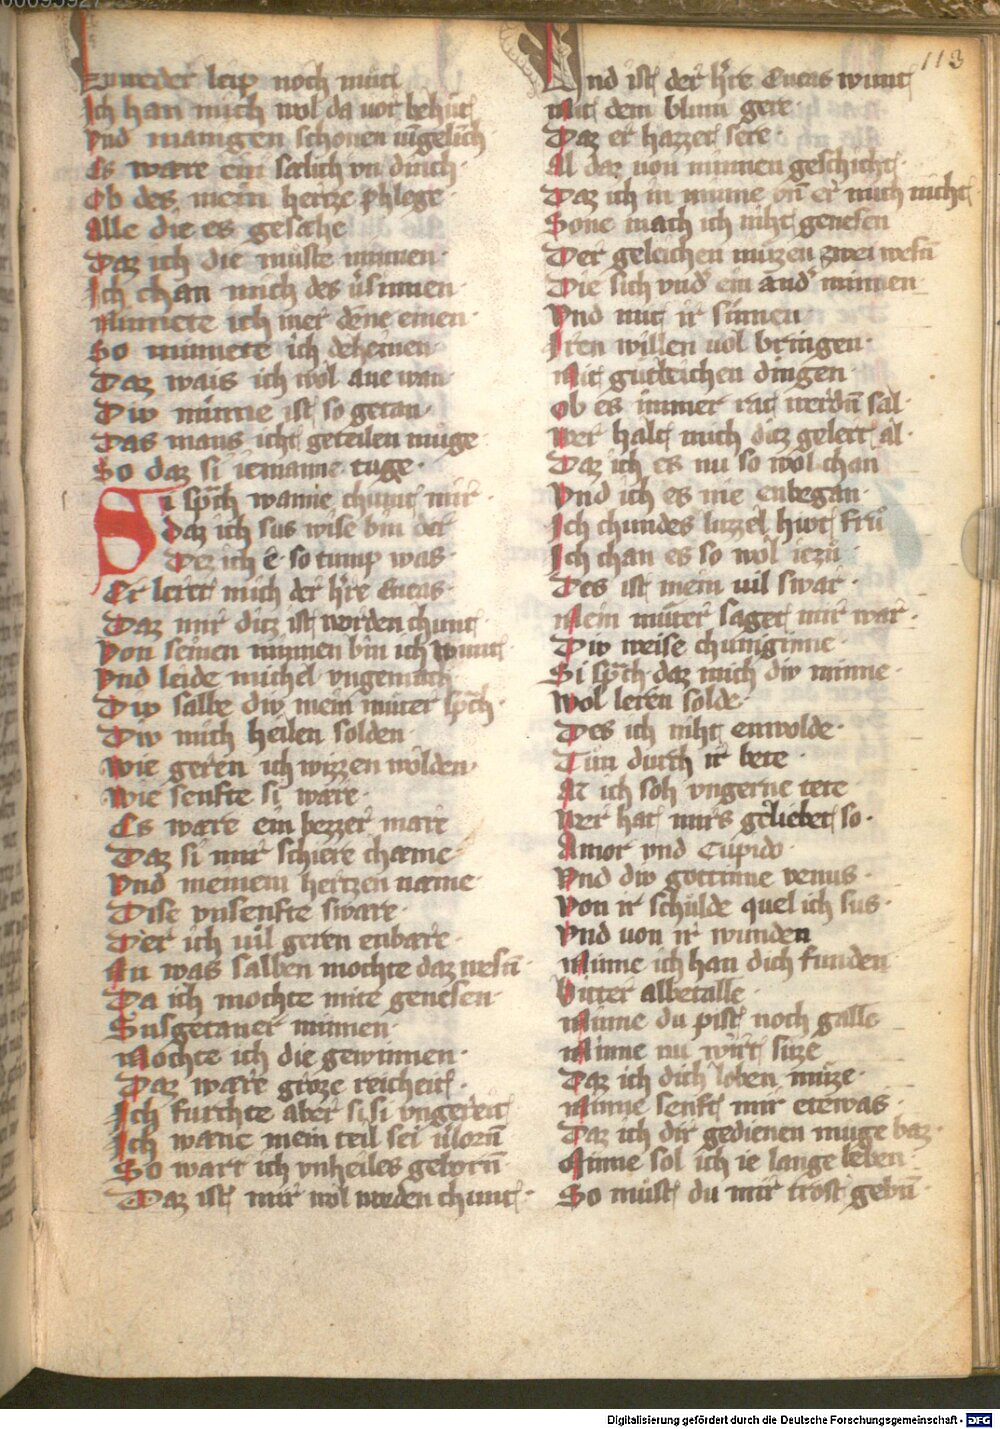 Entweder leip noch mut
Ich han mich wol da vor behut
Vnd manigen schonen vngelich
Es ware ein sælich vn dinch
Ob des mein hertze phlege
Alle die es gesæhe
Daz ich die muste minnen
Ich chan mich des v'sinnen
Minnete ich mer dēne einen
So minnete ich deheinen
Daz wais ich wol ane wan
Diw minne ist so getan
Das mans icht geteilen muge
So daz si iemanne tuge
Si sprach wanne chumt mir
daz ich sus wise bin der
Der ich e so tump was
Er leret mich der h're Eneas
Daz mir ditz ist worden chunt
Von seinen minnen bin ich wunt
Vnd leide michel vngemach
Diw salbe diw mein muter sprach
Diw mich heilen solden
Wie geren ich wizzen wolden
Wie senfte si ware
Es ware ein bezzer mare
Daz si mir schiere chæme
Vnd meinem hertzen næme
Dise vnsenfte sware
Der ich vil geren enbare
An was salben mochte daz wesn̄
Da ich mochte mite genesen
Susgetaner minnen
Mochte ich die gewinnen
Daz ware groze reicheit
Ich furchte aber si si vngereit
Ich wane mein teil sei v'lorn̄
So wart ich vnheiles geborn̄
Daz ist mir wol worden chunt
Vnd ist der h're Eneas wunt
Mit dem blinn gere
Daz er hazzet sere
Al daz von minnen geschicht
Daz ich in minne vn̄ er mich nicht
Sone mach ich niht genesen
Der geleichen muzen zwei wesn̄
Die sich vnd' ein and' minnen
Vnd mit ir sinnen
Iren willen vol bringen
Mit gutleichen dingen
Ob es immer rat werdn̄ sal
Wer halt mich ditz gelert al
Daz ich es nu so wol chan
Vnd ich es nie enbegan
Ich chundes luzzel hiwt fru
Ich chan es so wol iezu
Des ist mein vil swar
Mein muter saget mir war
Diw weise chuniginne
Si sprach daz mich diw minne
Wol leren solde
Des ich niht enwolde
Tun durch ir bete
At ich soh vngerne tete
Wer hat mirs geliebet so
Amor vnd Cupido
Vnd diw gottinne venus
Von ir schulde quel ich sus
Vnd von ir wunden
Minne ich han dich funden
Bitter albetalle
Minne du pist noch galle
Minne nu wirt suze
Daz ich dich loben muze
Minne senft mir etewas
Daz ich dir gedienen muge baz
Minne sol ich ie lange leben
So must du mir trost gebn̄
113
Digitalisierung gefördert durch die Deutsche Forschungsgemeinschaft - DFG